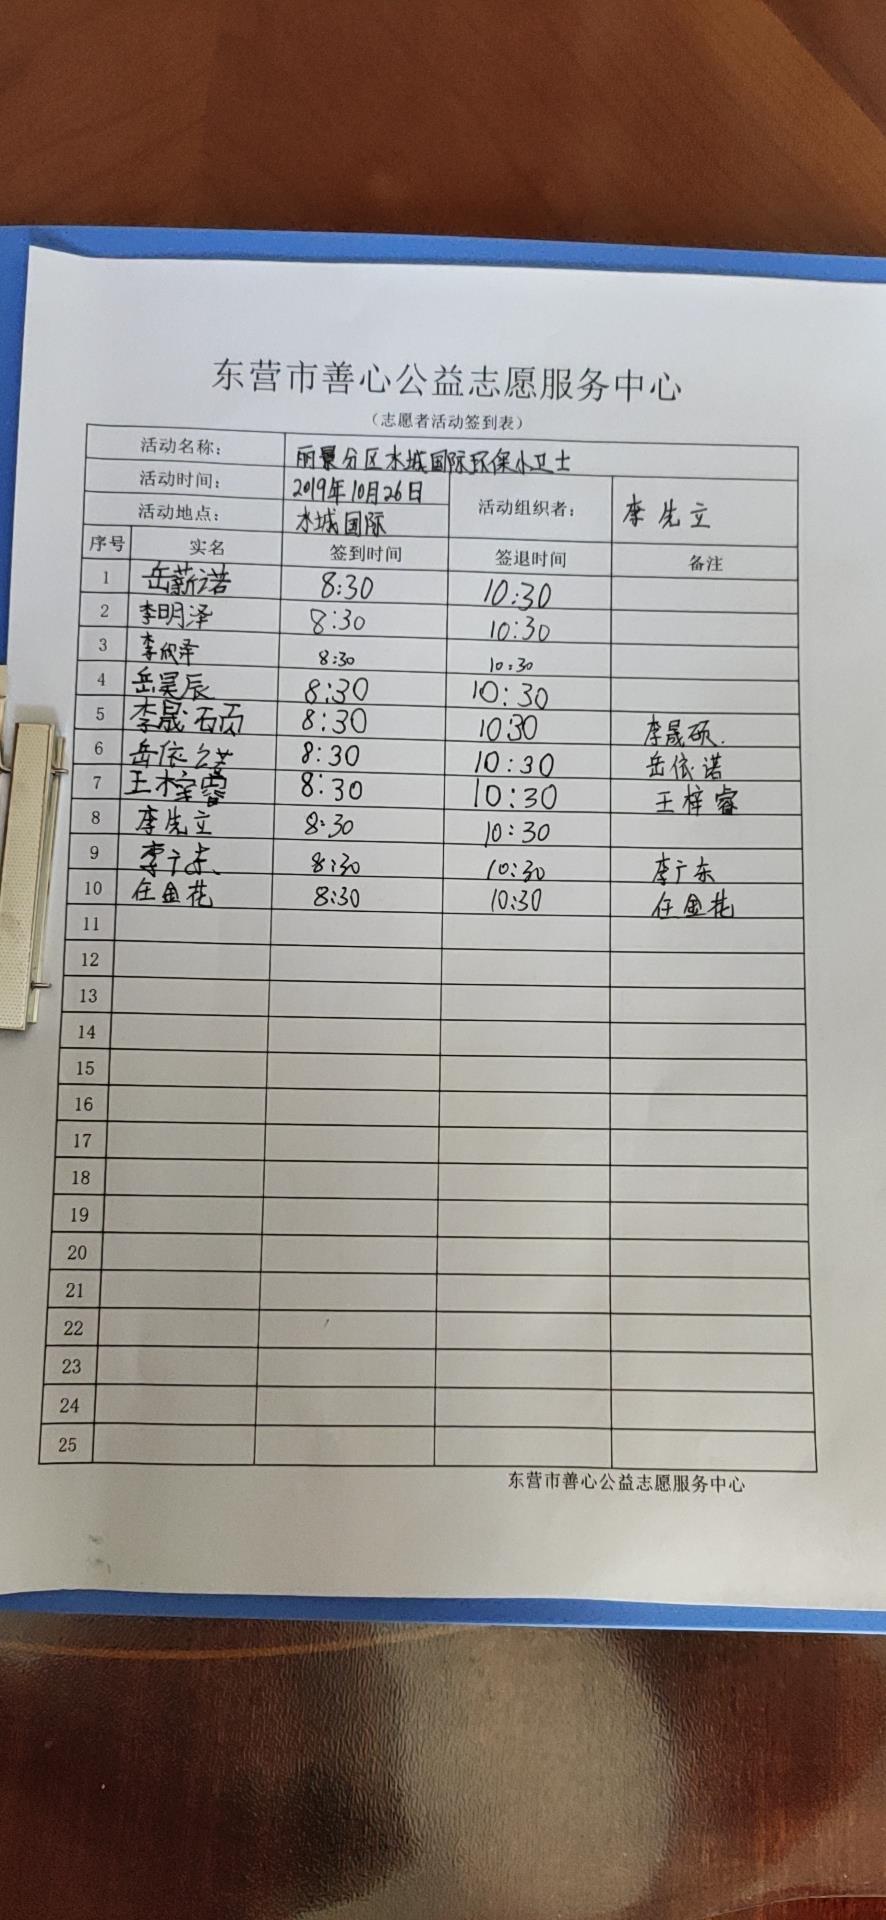 东营市善心公益志愿服务中心
（志愿者活动签到表）
活动名称： 丽景分区水城国际环保小卫士
活动时间： 2019年10月26日 活动组织者： 李先立
活动地点： 水城国际
序号 实名 签到时间 签退时间 备注
1 岳薪诺 8:30 10:30
2 李明泽 8:30 10:30
3 李欣泽 8:30 10:30
4 岳昊辰 8:30 10:30
5 李晟硕 8:30 1030 李晟硕.
6 岳依诺 8:30 10:30 岳依诺
7 王梓睿 8:30 10:30 王梓睿
8 李先立 8:30 10:30
9 李广东 8:30 10:30 李广东
10 任金花 8:30 10:30 任金花
11
12
13
14
15
16
17
18
19
20
21
22
23
24
25
东营市善心公益志愿服务中心